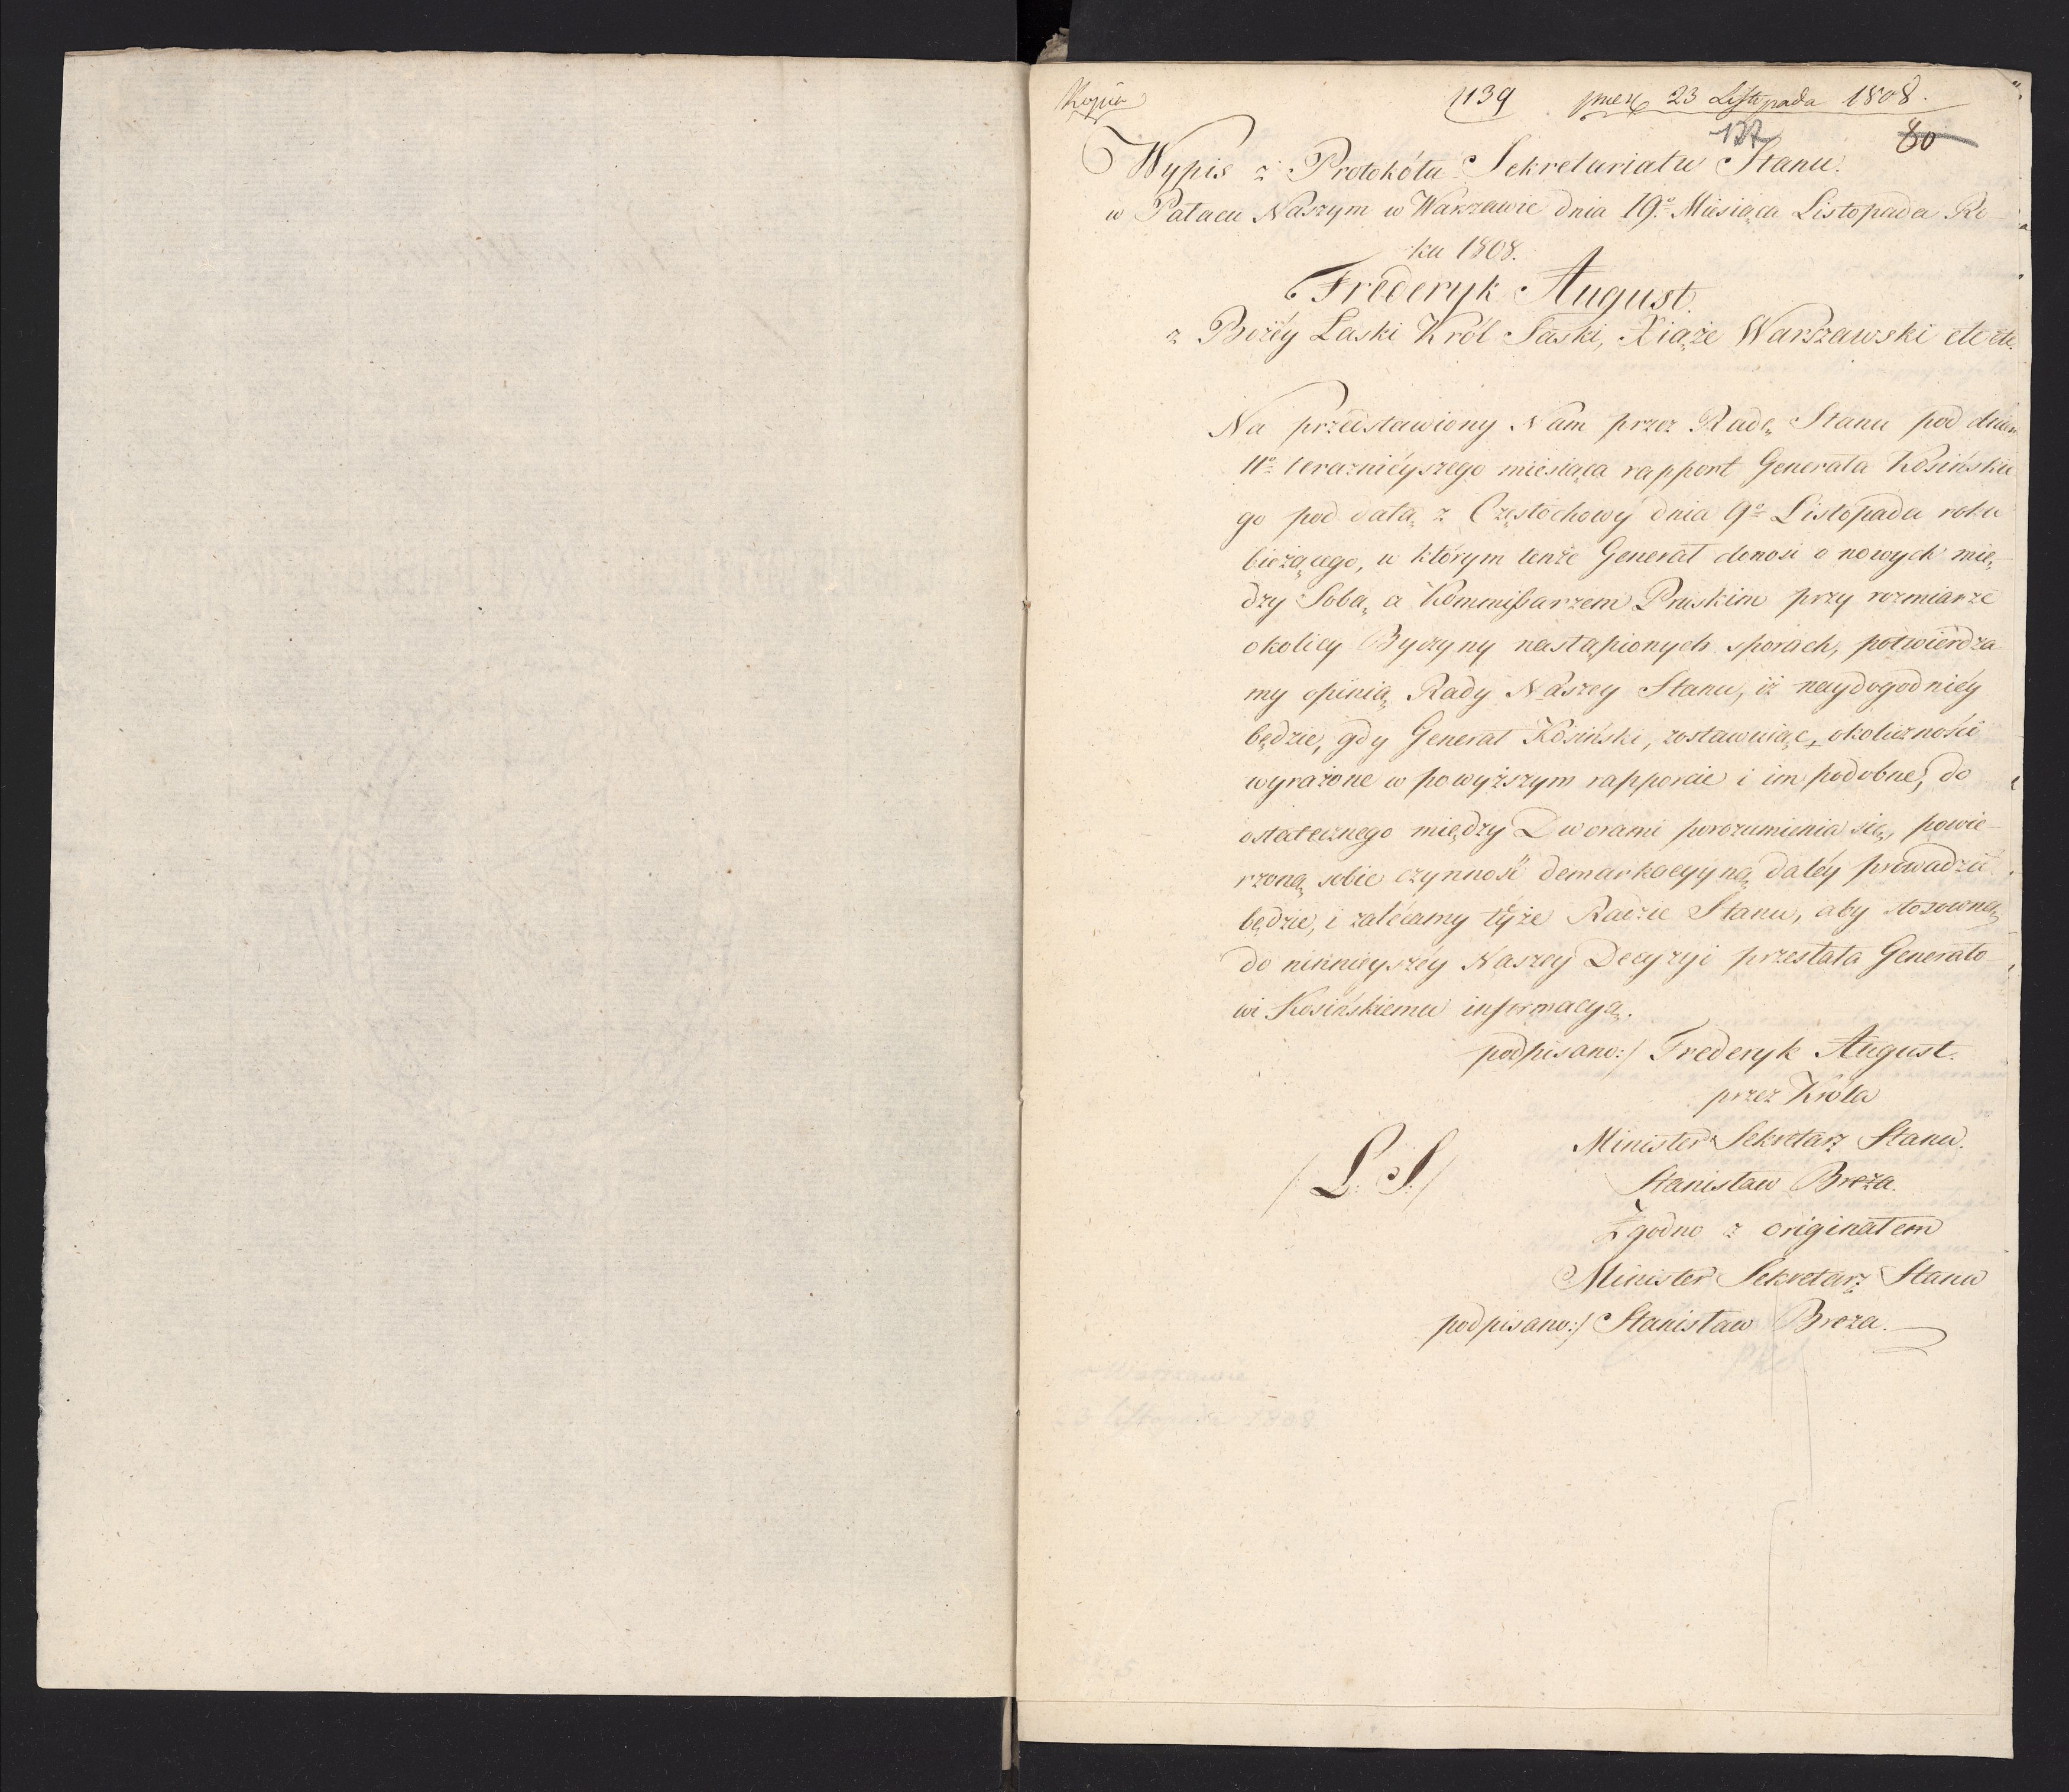 Kopia
1139 23 Listopada 1808.
137 80
Wypis z Protokółu Sekretariatu Stanu.
w Pałacu Naszym w Warszawie dnia 19º Miesiąca Listopada Ro-
ku 1808.
Frederyk August.
z Bożéy Łaski Król Saski, Xiąże Warszawski etc etc.
Na przedstawiony Nam przez Radę Stanu pod dniem
11º teraznieyszego miesiąca rapport Generała Kosińskie
go pod datą z Częstochowy dnia 9º Listopada roku
bieżącego, w którym tenże Generał donosi o nowych mię-
dzy Sobą a Kommissarzem Pruskim przy rozmiarze
okolicy Byczyny nastąpionych sporach, potwierdza
my opinią Rady Naszey Stanu, iż naydogodniéy
będzie, gdy Generał Kosiński, zostawuiąc okoliczności
wyrażone w powyższym rapporcie i im podobne, do
ostatecznego między Dworami porozumienia się, powie-
rzoną sobie czynność demarkacyyną daléy prowadzić
będzie, i zalécamy téyże Radzie Stanu, aby stosowną
do ninnieyszéy Naszey Decyzyi przesłała Generało-
wi Kosińskiemu informacyą.
podpisano:/ Frederyk August.
przez Króla
Minister Sekretarz Stanu.
/L: S:/
Stanisław Breza.
Zgodno z originałem
Minister Sekretarz Stanu
podpisano:/ Stanisław Breza.